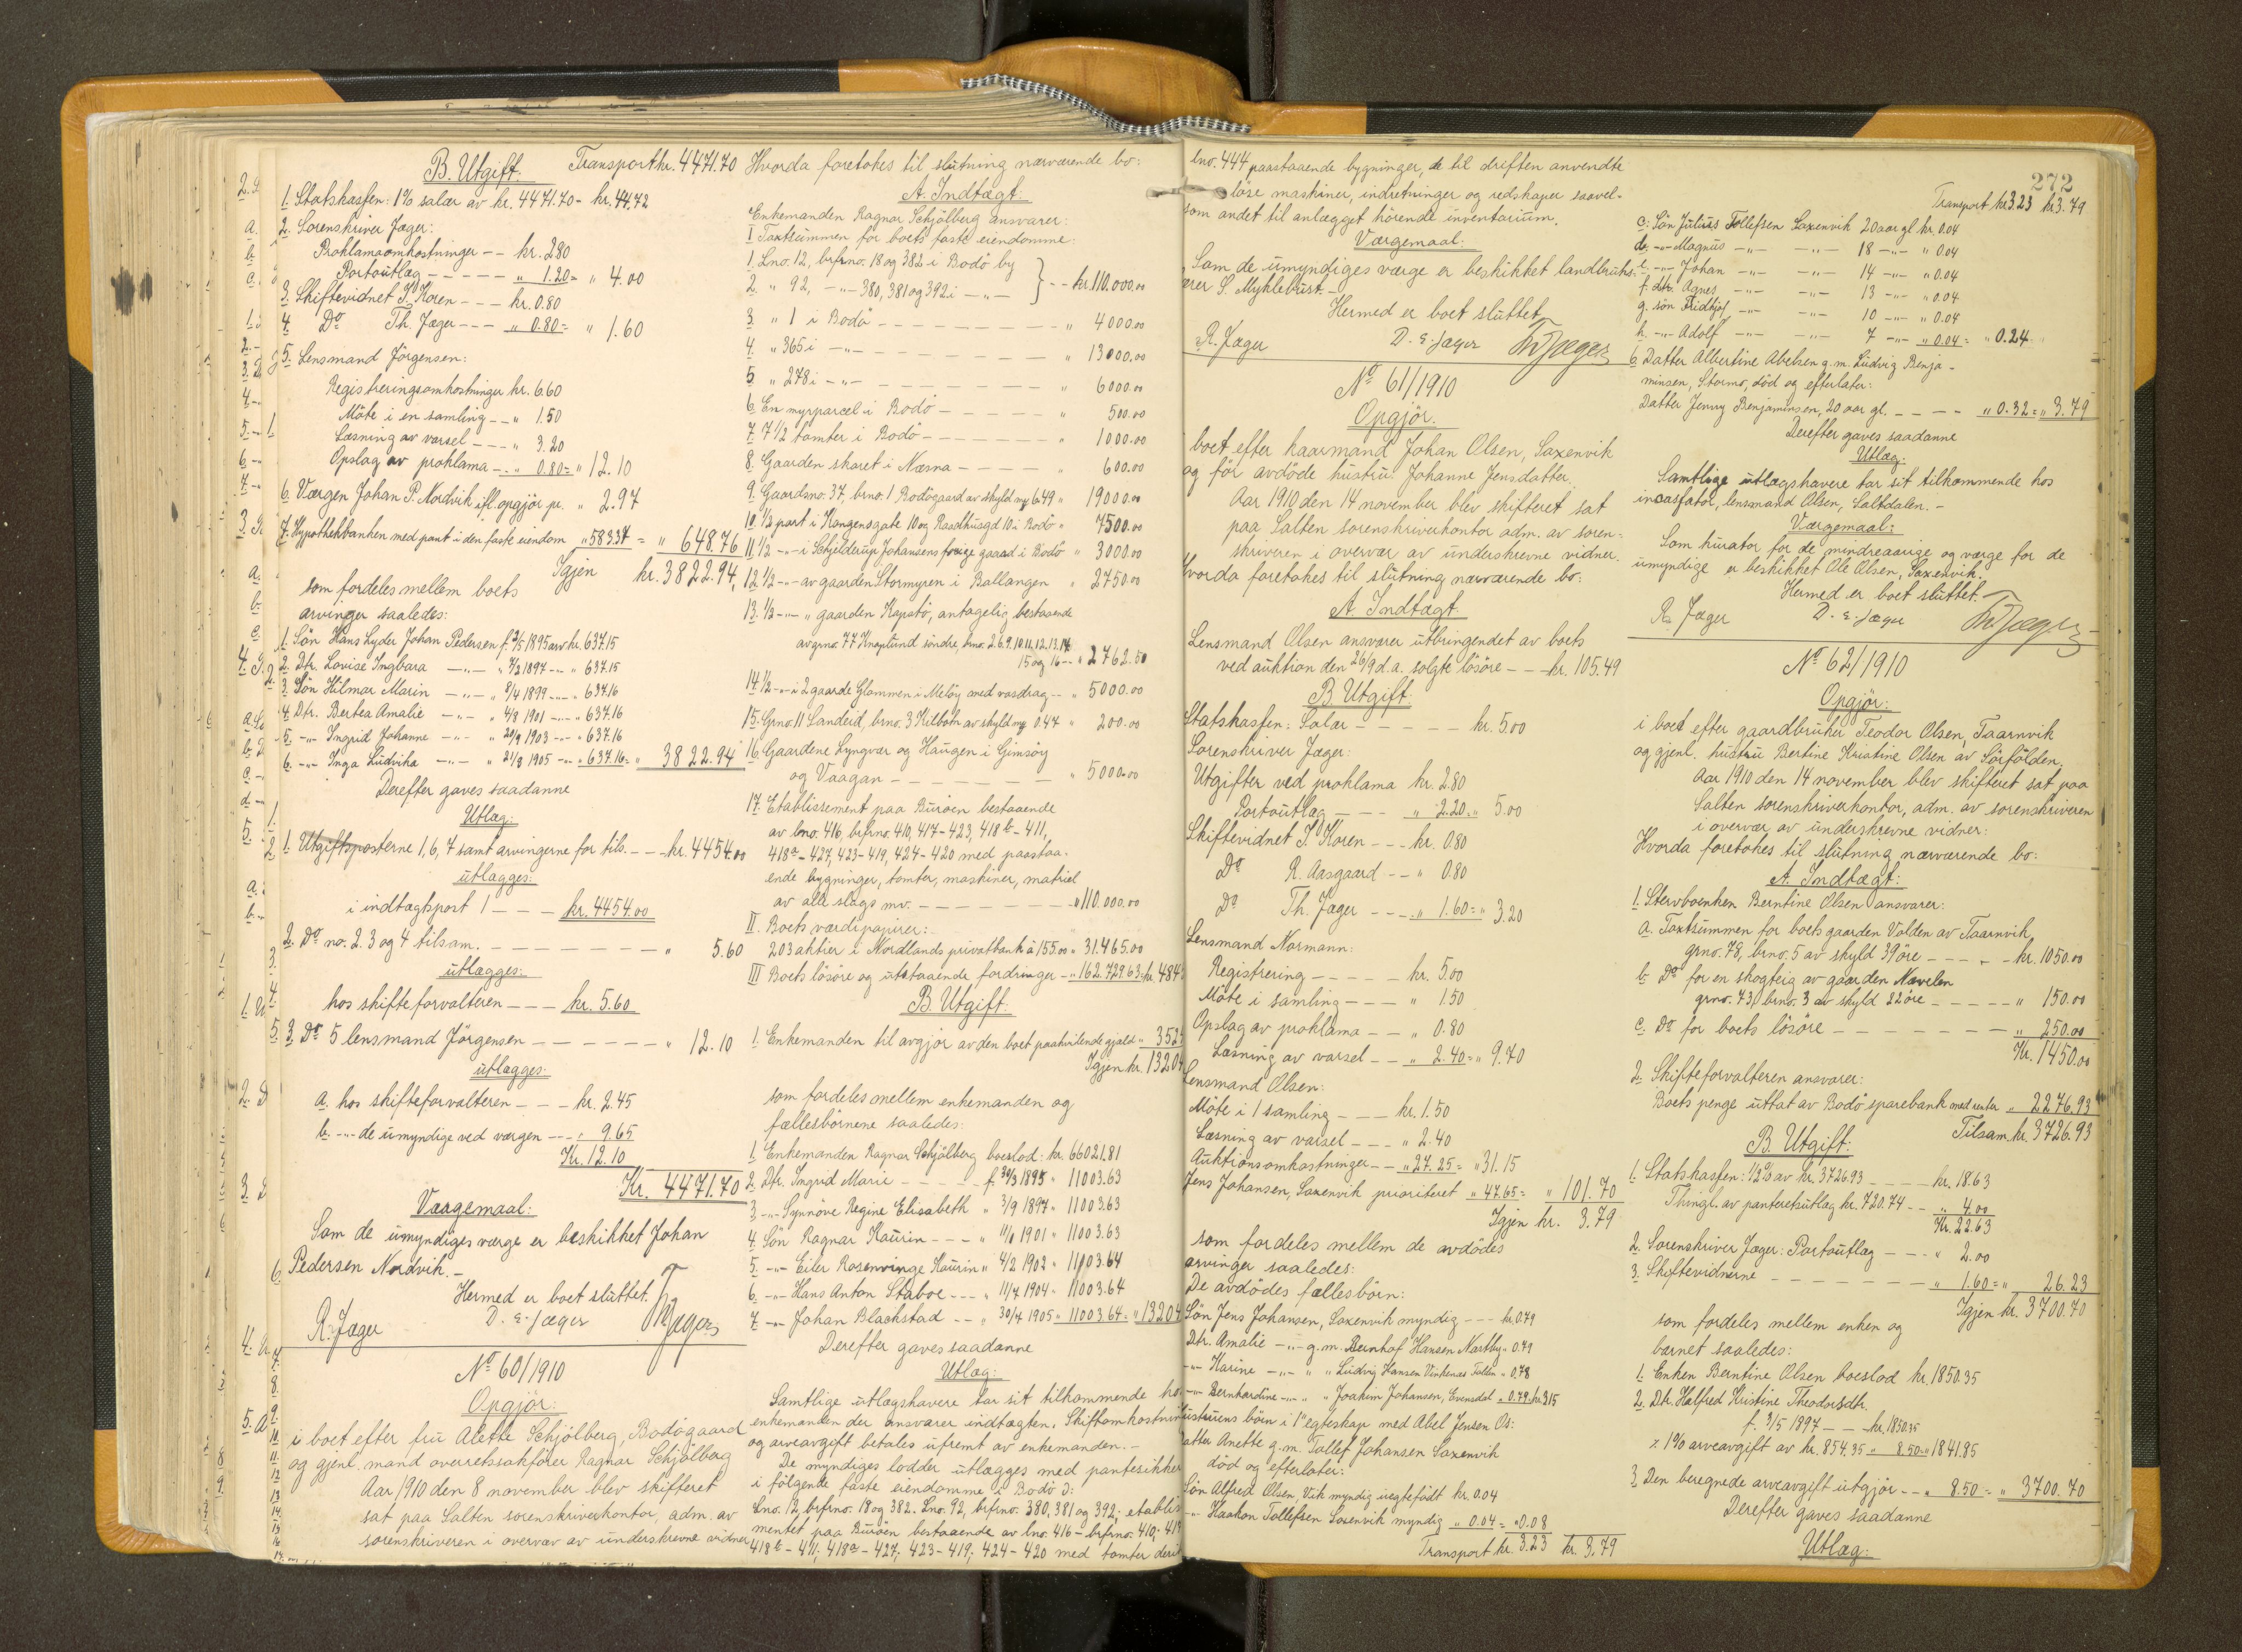 B. Utgift. Transport kr. 4471.70
1. Statskassen: 1% salær av kr. 4471.70 - kr. 44.72
2. Sorenskriver Jæger:
Proklamaomkostninger -- kr. 2.80
Portoutlæg ----- " 1.20 = " 4.00
3. Skiftevidnet S. Koren --- kr. 0.80
4. Do Th. Jæger --- " 0.80 = " 1.60
5. Lensmand Jörgensen:
Registreringsomkostninger kr. 6.60
Möte i en samling -- " 1.50
Læsning av varsel --- " 3.20
Opslag av proklama -- " 0.80 = " 12.10
6. Værgen Johan P. Nordvik ifl. opgjör pr. " 2.97
7. Hypothekbanken med pant i den faste eiendom " 583.37 = " 648.76
Igjen kr. 3822.94,
som fordeles mellem boets
arvinger saaledes:
1. Sön Hans Lyder Johan Pedersen f. 2/5 1895 arv kr. 637.15
2. Dtr. Lovise Ingbara -"- " 7/2 1897 -"- " 637.15
3. Sön Hilmar Marin -"- " 8/4 1899 -"- " 637.16
4. Dtr. Bertea Amalie -"- " 4/8 1901 -"- " 637.16
5. -"- Ingrid Johanne -"- " 20/9 1903 -"- " 637.16
6. -"- Inga Ludvika -"- " 21/8 1905 -"- " 637.16 = " 3822.94
Derefter gaves saadanne
Utlæg:
1. Utgiftsposterne 1, 6, 7 samt arvingerne for tils. --- kr. 4454.00
utlægges:
i indtægtspost 1 --- kr. 4454.00
2. Do no. 2. 3 og 4 tilsam. ------- " 5.60
utlægges:
hos skifteforvalteren --- kr. 5.60
3. Do 5 lensmand Jörgensen ------ " 12.10
utlægges:
a. hos skifteforvalteren --- kr. 2.45
b. -"- de umyndige ved værgen --- " 9.65
Kr. 12.10
Kr. 4471.70
Værgemaal:
Som de umyndiges værge er beskikket Johan
Pedersen Nordvik.-
Hermed er boet sluttet.
R. Jæger D. E. Jæger Th Jæger
No 60/1910
Opgjör:
i boet efter fru Alette Schjölberg, Bodögaard
og gjenl. mand overretssakförer Ragnar Schjölberg
Aar 1910 den 8 november blev skifteret
sat paa Salten sorenskriverkontor, adm. av
sorenskriveren i overvær av underskrevne vidner
Hvorda foretokes til slutning nærværende bo:
A. Indtægt:
Enkemanden Ragnar Schjölberg ansvarer:
I Taxtsummen for boets faste eiendomme:
1. Lno. 12, brfrno. 18 og 382 i Bodö by
2. " 92, -"- 380, 381 og 392 i -"- } -- kr. 110.000.00
3. " 1 i Bodö -------- " 4000.00
4. " 365 i -"- -------- " 13000.00
5. " 278 i -"- -------- " 6000.00
6. En myrparcel i Bodö ----- " 500.00
7. 7 1/2 tomter i Bodö ------ " 1000.00
8. Gaarden skaret i Næsna ---- " 600.00
9. Gaardsno. 37, brno. 1 Bodögaard av skyld my 6.49 " 19000.00
10. 1/2 part i Kongensgate 10 og Raadhusgd 10 i Bodö " 7500.00
11. 1/2 -"- i Schjelderup Johansens forige gaard i Bodö " 3000.00
12. 1/2 -"- av gaarden Stormyren i Ballangen " 2750.00
13. 1/2 -"- " gaarden Kopstö, antagelig bestaaende
av grno. 77 Knaplund söndre, brno. 2.6.9.10.11.12.13.14
15 og 16 -- " 2762.50
14. 1/2 -"- i 2 gaarde Glommen i Melöy med vasdrag -- " 5000.00
15. Grno. 11 Sandeid, brno. 3 Kilbotn av skyld my 0.47 " 200.00
16. Gaardene Lyngvær og Haugen i Gimsöy
og Vaagan ------- " 5000.00
17. Etablissement paa Buröen bestaaende
av lno. 416, brfrno. 410, 417 - 423, 418 b - 411,
418 a - 427, 423 - 419, 424 - 420 med paastaa-
ende bygninger, tomter, maskiner, matriel
av alle slags mv. ------- " 110.000.00
II. Boets værdipapirer:
203 aktier i Nordlands privatbank à 155.00 " 31465.00
III Boets lösöre og utestaaende fordringer -- " 162.729.63 = kr. 484
B. Utgift.
1. Enkemanden til avgjör av den boet paahvilende gjæld " 352
Igjen kr. 13204
som fordeles mellem enkemanden og
fællesbörnene saaledes:
1. Enkemanden Ragnar Schjölberg boeslod: kr. 66021.81
2. Dtr. Ingrid Marie ---- f. 30/3 1895 " 11003.63
3. -"- Synnöve Regine Elisabeth " 3/9 1897 " 11003.63
4. Sön Ragnar Kaurin --- " 11/6 1901 " 11003.63
5. -"- Eiler Rosenvinge Kaurin " 4/2 1902 " 11003.64
6. -"- Hans Anton Staboe --- " 11/4 1904 " 11003.64
7. -"- Johan Blackstad -- " 30/4 1905 " 11003.64 = " 13204
Derefter gaves saadanne
Utlæg:
Samtlige utlægshavere tar sit tilkommende hos
enkemanden der ansvarer indtægten. Skifteomkostnin
og arveavgift betales ufremt av enkemanden.-
De myndiges lodder utlægges med pantesikker
i fölgende faste eiendomme i Bodö ɔ:
Lno. 12, brfrno. 18 og 382. Lno. 92, brfrno. 380, 381 og 392; etablis
mentet paa Buröen bestaaende av lno. 416 - brfrno. 410; 417
418 b - 411; 418 a - 427; 423 - 419; 424 - 420 med tomter deri
272
lno. 444 paastaaende bygninger, de til driften anvendte
löse maskiner, indretninger og redskaper saavel-
som andet til anlægget hörende inventarium.
Værgemaal:
Som de umyndiges værge er beskikket landbruks-
ærer S. Myklebust.-
Hermed er boet sluttet.
R. Jæger D. E. Jæger Th Jæger
No 61/1910
Opgjör.
i boet efter kaarmand Johan Olsen, Saxenvik
og för avdöde hustru Johanne Jensdatter.
Aar 1910 den 14 november blev skifteret sat
paa Salten sorenskriverkontor adm. av soren-
skriveren i overvær av underskrevne vidner.
Hvorda foretokes til slutning nærværende bo:
A. Indtægt.
Lensmand Olsen ansvarer utbringendet av boets
ved auktion den 26/9 d.a. solgte lösöre --- kr. 105.49
B. Utgift.
Statskassen: Salær ----- kr. 5.00
Sorenskriver Jæger:
Utgifter ved proklama kr. 2.80
Portoutlæg --- " 2.20 = " 5.00
Skiftevidnet S. Koren --- kr. 0.80
Do R. Aasgaard -- " 0.80
Do Th. Jæger --- " 1.60 = " 3.20
Lensmand Normann:
Registrering ----- kr. 5.00
Möte i samling --- " 1.50
Opslag av proklama -- " 0.80
Læsning av varsel -- " 2.40 = " 9.70
Lensmand Olsen:
Möte i 1 samling --- kr. 1.50
Læsning av varsel --- " 2.40
Auktionsomkostninger -- " 27.25 = " 31.15
Jens Johansen, Saxenvik prioriteret " 47.65 = " 101.70
Igjen kr. 3.79
som fordeles mellem de avdödes
arvinger saaledes:
De avdödes fællesbörn:
Sön Jens Johansen, Saxenvik myndig --- kr. 0.79
Dtr. Amalie -"- g.m. Bernhof Hansen Nastby " 0.79
-"- Karine -"- " " Ludvig Hansen Vinkenes Folden " 0.78
-"- Bernhardine -"- " " Joakim Johansen, Evensdal " 0.79 kr. 3.15
Hustruens börn i 1ste egteskap med Abel Jensen Os:
Datter Anette g.m. Tollef Johansen Saxenvik
död og efterlater:
Sön Alfred Olsen, Vik myndig uegtefödt kr. 0.04
-"- Haakon Tollefsen Saxenvik myndig " 0.04 = " 0.08
Transport kr. 3.23 kr. 3.79
Transport kr. 3.23 kr. 3.79
c. Sön Julius Tollefsen Saxenvik 20 aar gl kr. 0.04
d. -"- Magnus -"- -"- 18 -"- " 0.04
e. -"- Johan -"- -"- 14 -"- " 0.04
f. dtr. Agnes -"- -"- 13 -"- " 0.04
g. sön Fridtjof -"- -"- 10 -"- " 0.04
h. -"- Adolf -"- -"- 7 -"- " 0.04 = " 0.24
6. Datter Albertine Abelsen g.m. Ludvig Benja-
minsen, Stormo, död og efterlater:
Datter Jenny Benjaminsen, 20 aar gl. ---- " 0.32 = " 3.79
Derefter gaves saadanne
Utlæg:
Samtlige utlægshavere tar sit tilkommende hos
incassator, lensmand Olsen, Saltdalen.-
Værgemaal:
Som kurator for de mindreaarige og værge for de
umyndige er beskikket Ole Olsen, Saxenvik.
Hermed er boet sluttet.
R. Jæger D. E. Jæger Th Jæger
No 62/1910
Opgjör:
i boet efter gaardbruker Teodor Olsen, Taarnvik
og gjenl. hustru Bertine Kristine Olsen av Sörfolden.
Aar 1910 den 14 november blev skifteret sat paa
Salten sorenskriverkontor, adm. av sorenskriveren
i overvær av underskrevne vidner:
Hvorda foretokes til slutning nærværende bo:
A. Indtægt:
1. Stervboenken Berntine Olsen ansvarer:
a. Taxtsummen for boets gaarden Volden av Taarnvik,
grno. 78, brno. 5 av skyld 39 öre ---- kr. 1050.00
b. Do for en skogteig av gaarden Nævelen
grno. 73, brno. 3 av skyld 22 öre ----- " 150.00
c. Do for boets lösöre -------- " 250.00
Kr. 1450.00
2. Skifteforvalteren ansvarer:
Boets penge uttat av Bodö sparebank med renter " 2276.93
Tilsam. kr. 3726.93
B. Utgift:
1. Statskassen: 1/2 % av kr. 3726.93 ---- kr. 18.63
Thingl. av panteretsutlæg kr. 720.74 -- " 4.00
Kr. 22.63
2. Sorenskriver Jæger: Portoutlæg --- " 2.00
3. Skiftevidnerne ------- " 1.60 = " 26.23
Igjen kr. 3700.70
som fordeles mellem enken og
barnet saaledes:
1. Enken Berntine Olsen boeslod kr. 1850.35
2. Dtr. Halfred Kristine Theodorsdtr.
f. 3/5 1897 --- kr. 1850.35
÷ 1% arveavgift av kr. 854.35 " 8.50 = " 1841.85
3. Den beregnede arveavgift utgjör -- " 8.50 = " 3700.70
Derefter gaves saadanne
Utlæg: